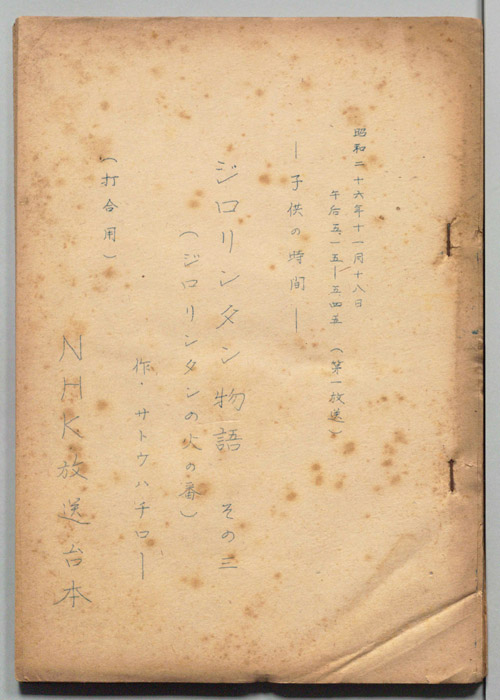 昭和二十六年十一月十八日
午后五、一五―五、四五　（第一放送）
―子供の時間―
ジロリンタン物語　その三
（ジロリンタンの火の番）
作・サトウハチロー
（打合用）
NHK放送台本